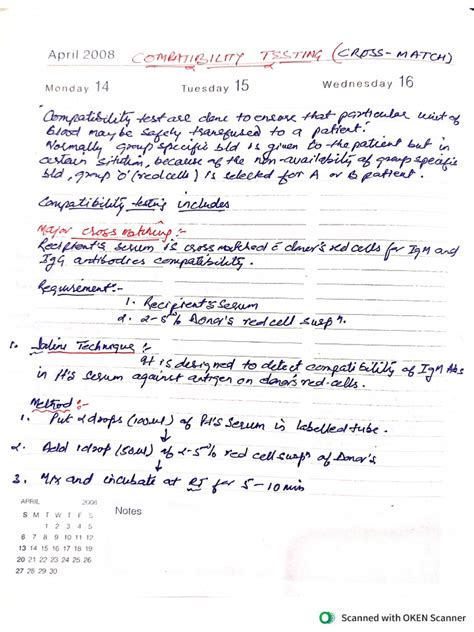 April 2008 COMPATIBILITY TESTING (CROSS-MATCH)
Monday 14 Tuesday 15 Wednesday 16
Compatibility test are done to ensure that particular unit of
blood may be safely transfused to a patient.
Normally group specific bld is given to the patient but in
certain sitution, because of the non-availability of group specific
bld, group 'O' (red cells) is selected for A or B patient.
Compatibility testing includes
Major cross matching :-
Recipient's serum is cross matched c̄ donor's red cells for IgM and
IgG antibodies compatibility.
Requirement :-
1. Recipient's serum
2. 2-5% Donor's red cell suspn.
1. Saline Technique :-
It is designed to detect compatibility of IgM Abs
in Pt's serum against antigen on donor's red cells.
Method :-
1. Put 2 drops (100ul) of Pt's serum in labelled tube.
↓
2. Add 1 drop (50ul) of 2-5% red cell suspn of Donor's
↓
3. Mix and incubate at RT for 5-10 min
APRIL 2008
Notes
S M T W T F S
1 2 3 4 5
6 7 8 9 10 11 12
13 14 15 16 17 18 19
20 21 22 23 24 25 26
27 28 29 30
Scanned with OKEN Scanner